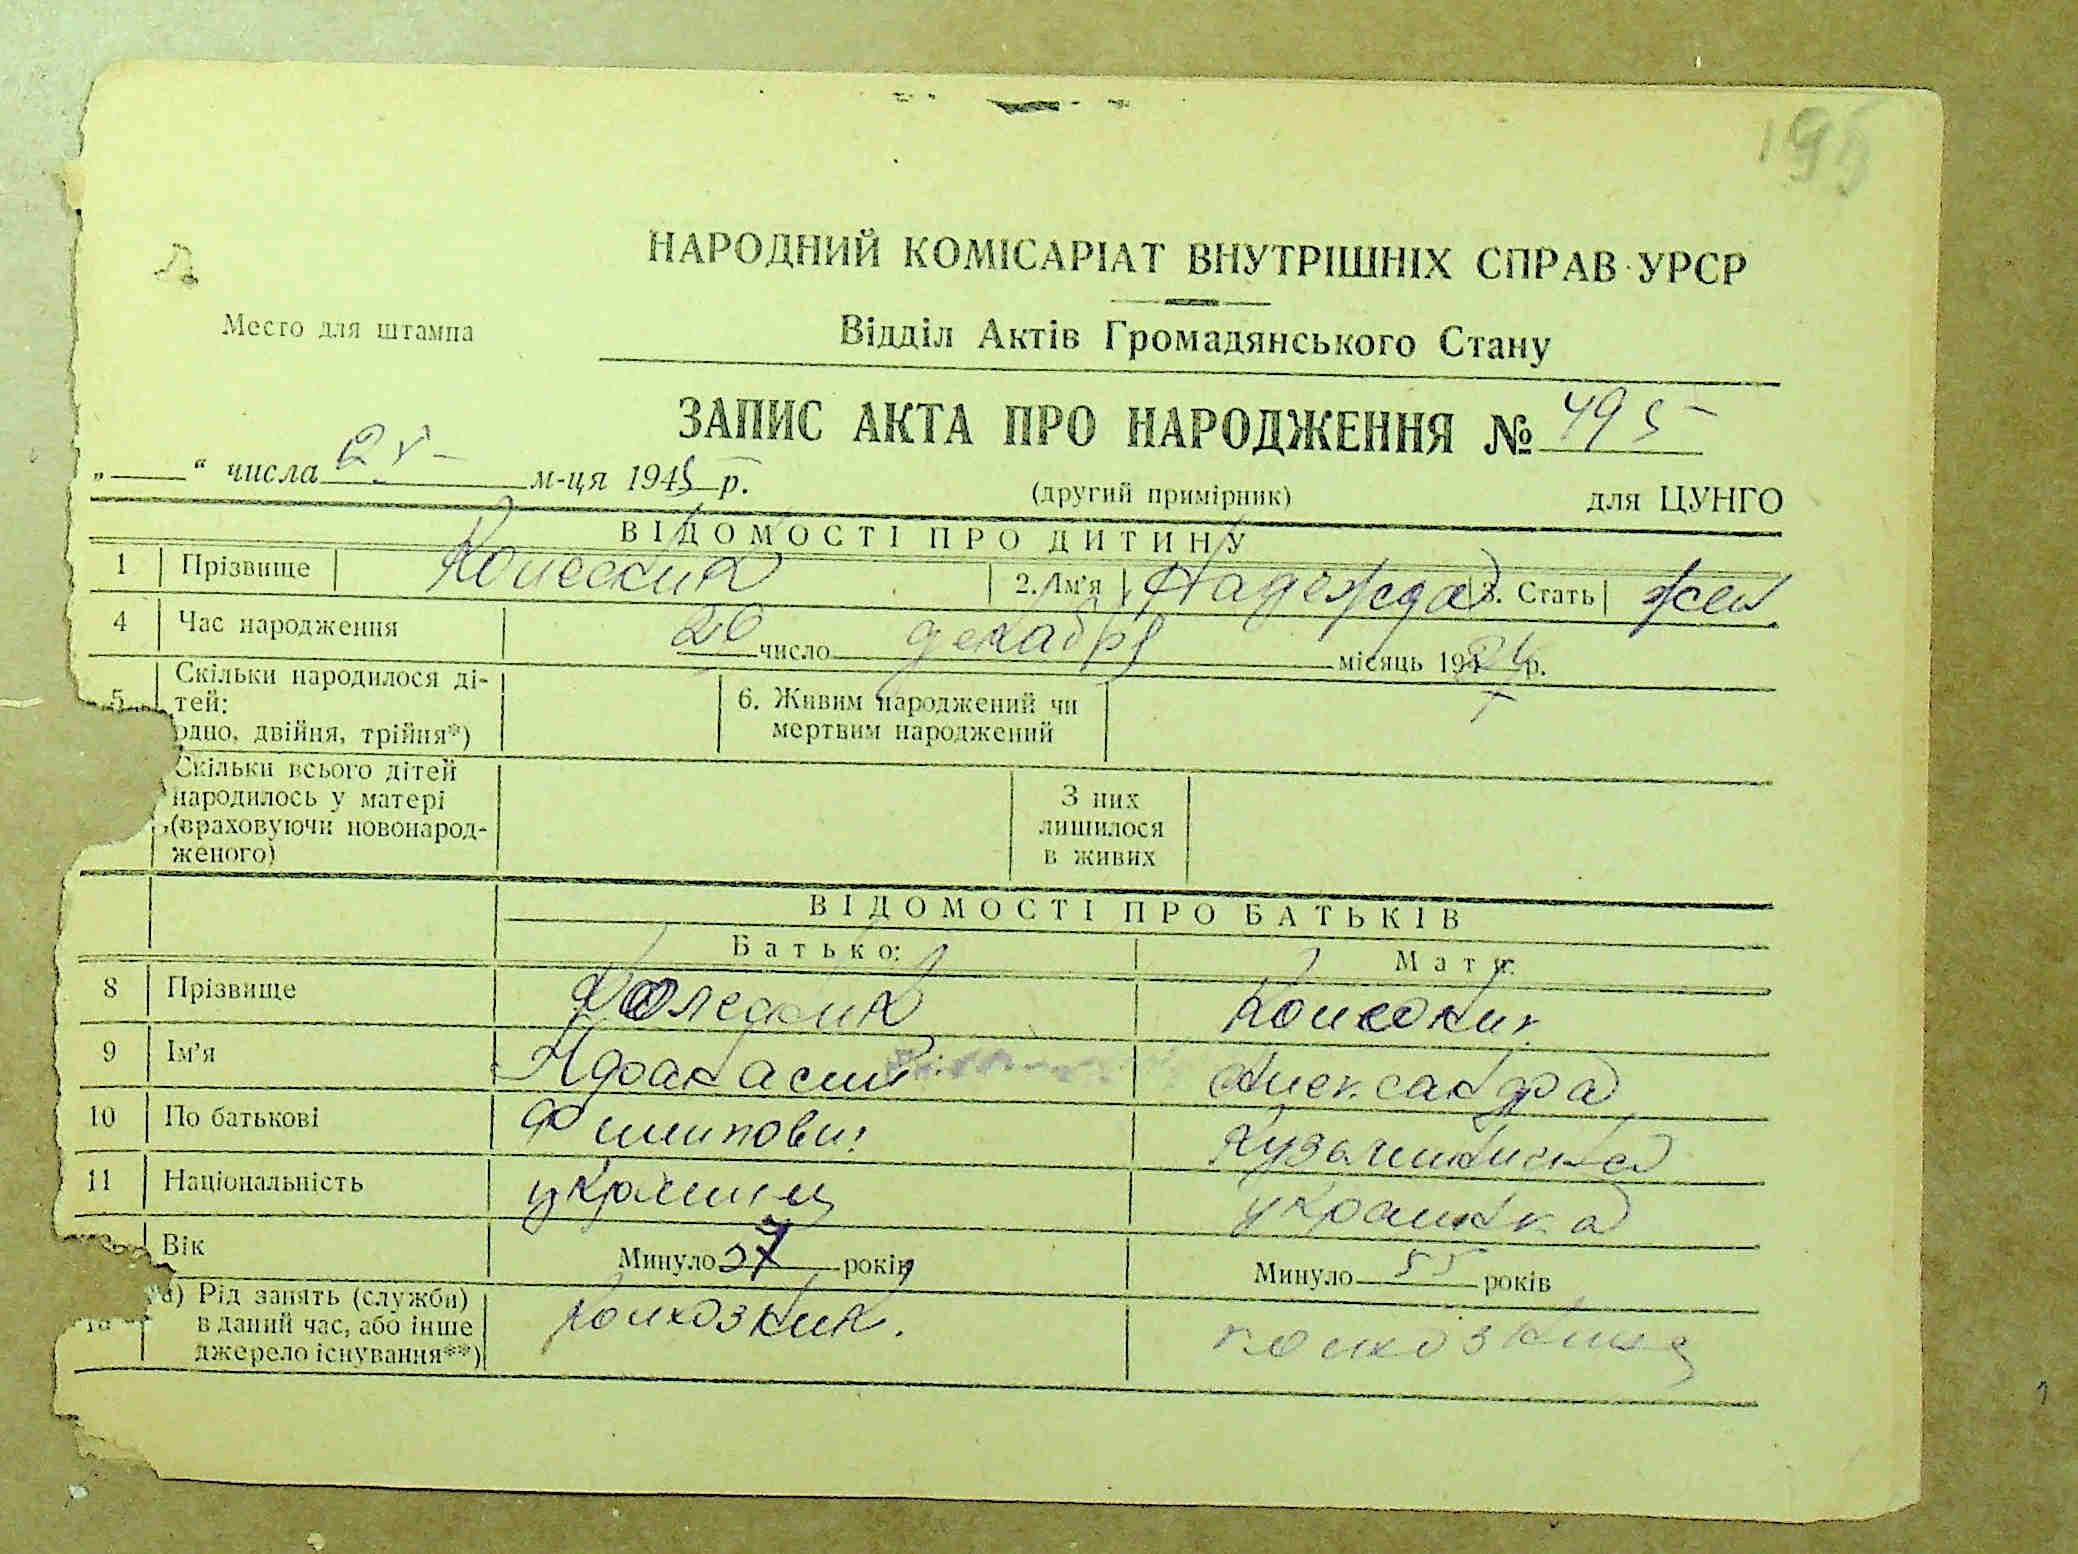 195
НАРОДНИЙ КОМІСАРІАТ ВНУТРІШНІХ СПРАВ УРСР
Место для штампа
Відділ Актів Громадянського Стану
ЗАПИС АКТА ПРО НАРОДЖЕННЯ № 495
„ “ числа м-ця 1945 р.
(другий примірник) для ЦУНГО
ВІДОМОСТІ ПРО ДИТИНУ
1 Прізвище 2. Ім'я Надежда 3. Стать жен
4 Час народження 20 число декабря місяць 19 р.
5 Скільки народилося ді-
тей:
одно, двійня, трійня*)
6. Живим народжений чи
мертвим народжений
Скільки всього дітей
народилось у матері
(враховуючи новонарод-
женого)
З них
лишилося
в живих
ВІДОМОСТІ ПРО БАТЬКІВ
Батько: Мати:
8 Прізвище
9 Ім'я Александра
10 По батькові Филипович
11 Національність украинец украинка
Вік Минуло 57 років Минуло 55 років
а) Рід занять (служби)
в даний час, або інше
джерело існування**)
колхозник. колхозница